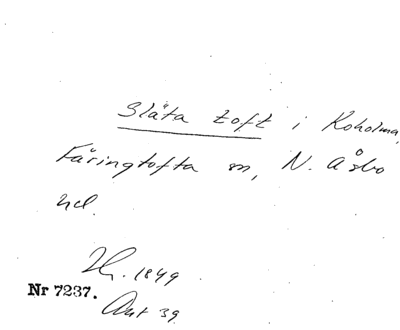 Släta toft i Koholma,
Färingtofta sn, N. Åsbo
hd.
Th. 1849
Nr 7237.
Ant 39